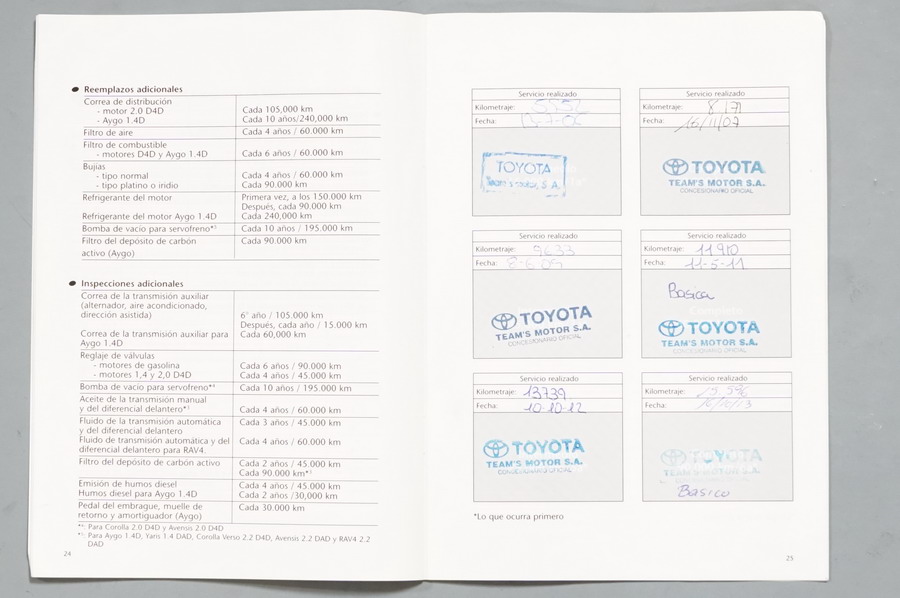 Reemplazos adicionales
Correa de distribución
- motor 2.0 D4D Cada 105,000 km
- Aygo 1.4D Cada 10 años/240,000 km
Filtro de aire Cada 4 años / 60.000 km
Filtro de combustible
- motores D4D y Aygo 1.4D Cada 6 años / 60.000 km
Bujías
- tipo normal Cada 4 años / 60.000 km
- tipo platino o indio Cada 90.000 km
Refrigerante del motor Primera vez, a los 150.000 km
Después, cada 90.000 km
Refrigerante del motor Aygo 1.4D Cada 240,000 km
Bomba de vacío para servofreno Cada 10 años / 195.000 km
Filtro del depósito de carbón Cada 90.000 km
activo (Aygo)
Inspecciones adicionales
Correa de la transmisión auxiliar
(alternador, aire acondicionado,
dirección asistida) 6° año / 105.000 km
Después, cada año / 15.000 km
Correa de la transmisión auxiliar para Cada 60,000 km
Aygo 1.4D
Reglaje de válvulas
- motores de gasolina Cada 6 años / 90.000 km
- motores 1,4 y 2,0 D4D Cada 4 años / 45.000 km
Bomba de vacío para servofreno Cada 10 años / 195.000 km
Aceite de la transmisión manual
y del diferencial delantero Cada 4 años / 60.000 km
Fluido de la transmisión automática Cada 3 años / 45.000 km
y del diferencial delantero
Fluido de transmisión automática y del Cada 4 años / 60.000 km
diferencial delantero para RAV4
Filtro del depósito de carbón activo Cada 2 años / 45.000 km
Cada 90.000 km
Emisión de humos diesel Cada 4 años / 45.000 km
Humos diesel para Aygo 1.4D Cada 2 años /30,000 km
Pedal del embrague, muelle de Cada 30.000 km
retorno y amortiguador (Aygo)
Para Corolla 2.0 D4D y Avensis 2.0 D4D
Para Aygo 1.4D, Yaris 1.4 DAD, Corolla Verso 2.2 D4D, Avensis 2.2 DAD y RAV4 2.2
DAD
24
Servicio realizado
Kilometraje:
Fecha:
TOYOTA
Team's motor, S.A.
Servicio realizado
Kilometraje: 8.171
Fecha: 16/11/07
TOYOTA
TEAM'S MOTOR S.A.
CONCESIONARIO OFICIAL
Servicio realizado
Kilometraje: 9633
Fecha: 8-6-09
TOYOTA
TEAM'S MOTOR S.A.
CONCESIONARIO OFICIAL
Servicio realizado
Kilometraje: 11910
Fecha: 11-5-11
Basica
TOYOTA
TEAM'S MOTOR S.A.
CONCESIONARIO OFICIAL
Servicio realizado
Kilometraje: 13739
Fecha: 10.10.12
TOYOTA
TEAM'S MOTOR S.A.
CONCESIONARIO OFICIAL
Servicio realizado
Kilometraje:
Fecha:
TOYOTA
TEAM'S MOTOR S.A.
Basico
*Lo que ocurra primero
25